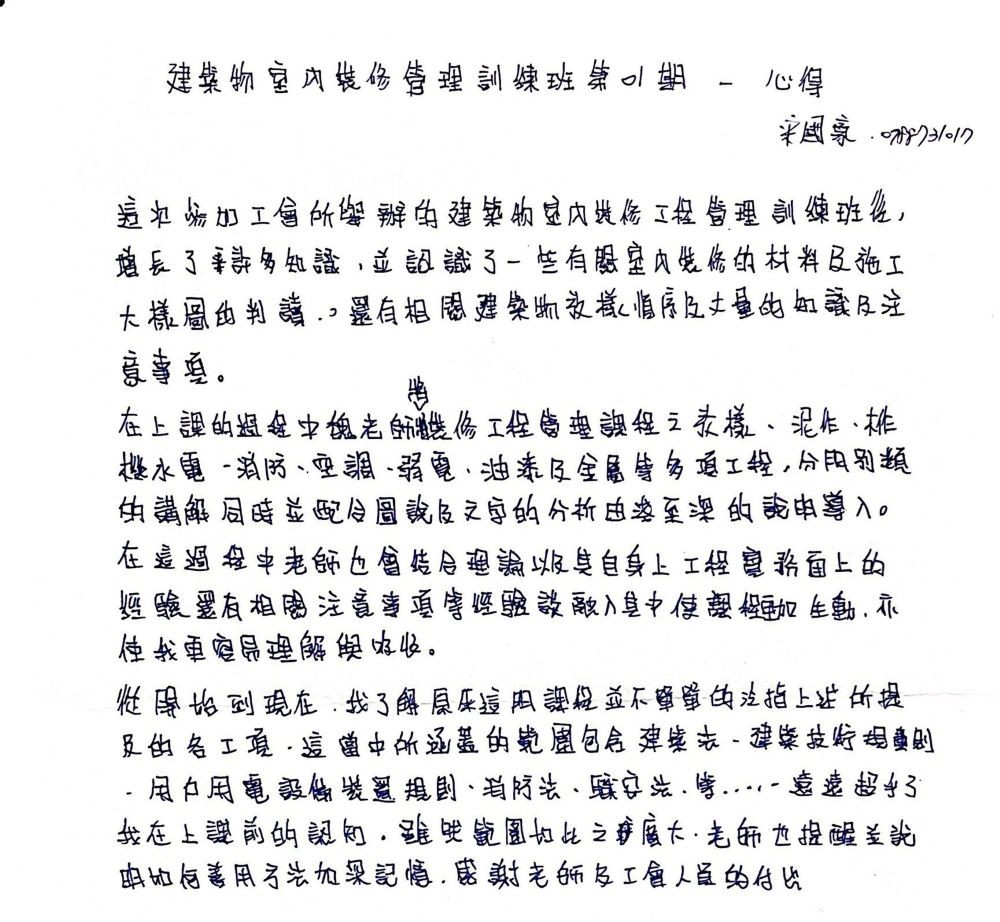 建築物室內裝修管理訓練班第01期 - 心得
宋國豪.0788731017
這次參加工會所舉辦的建築物室內裝修工程管理訓練班後,
增長了許多知識,並認識了一些有關室內裝修的材料及施工
大樣圖的判讀.。還有相關建築物放樣順序及丈量的知識及注
意事項。
在上課的過程中魏老師將裝修工程管理課程之放樣、泥作、木作
水電、消防、空調、弱電、油漆及金屬等多項工程,分門別類
的講解同時並配合圖說及文字的分析由淺至深的說明導入。
在這過程中老師也會結合理論以及其自身上工程實務面上的
經驗還有相關注意事項等經驗談融入其中使課程更加生動.亦
使我更容易理解與吸收。
從開始到現在.我了解原來這門課程並不單單的泛指上述所提
及的各工項.這當中所涵蓋的範圍包含建築法、建築技術規則
、用戶用電設備裝置規則、消防法、職安法.等.....遠遠超乎了
我在上課前的認知.雖然範圍如此之廣大.老師也提醒並說
明如何善用方法加深記憶.感謝老師及工會人員的付出